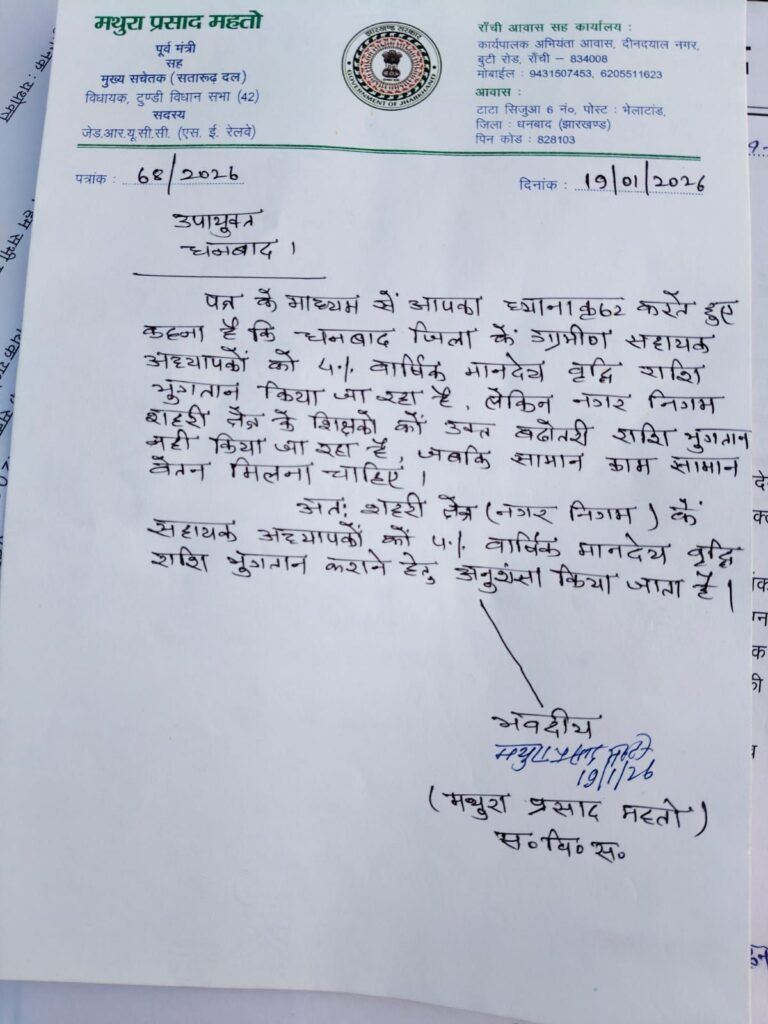 मथुरा प्रसाद महतो
पूर्व मंत्री
सह
मुख्य सचेतक (सतारूढ़ दल)
विधायक, टुण्डी विधान सभा (42)
सदस्य
जेड.आर.यू.सी.सी. (एस. ई. रेलवे)
झारखण्ड सरकार
GOVERNMENT OF JHARKHAND
राँची आवास सह कार्यालय :
कार्यपालक अभियंता आवास, दीनदयाल नगर,
बुटी रोड, राँची – 834008
मोबाईल : 9431507453, 6205511623
आवास :
टाटा सिजुआ 6 नं०, पोस्ट : भेलाटांड,
जिला : धनबाद (झारखण्ड)
पिन कोड : 828103
पत्रांक : 68/2026
दिनांक : 19/01/2026
उपायुक्त
धनबाद ।
पत्र के माध्यम सें आपका ध्यानाकृ६ट करते हुए
कहना है कि धनबाद जिला कें ग्रामीण सहायक
अध्यापकों कों 4% वार्षिक मानदेय वृद्धि राशि
भुगतान किया जा रहा है, लेकिन नगर निगम
शहरी क्षेत्र के शिक्षको कों उक्त बढोतरी राशि भुगतान
नही किया जा रहा है, जबकि सामान काम सामान
वेतन मिलना चाहिए ।
अतः शहरी क्षेत्र (नगर निगम) कें
सहायक अध्यापकों कों 4% वार्षिक मानदेय वृद्धि
राशि भुगतान कराने हेतु अनुशंसा किया जाता है ।
भवदीय
मथुरा प्रसाद महतो
19/1/26
(मथुरा प्रसाद महतो)
स० वि० स०